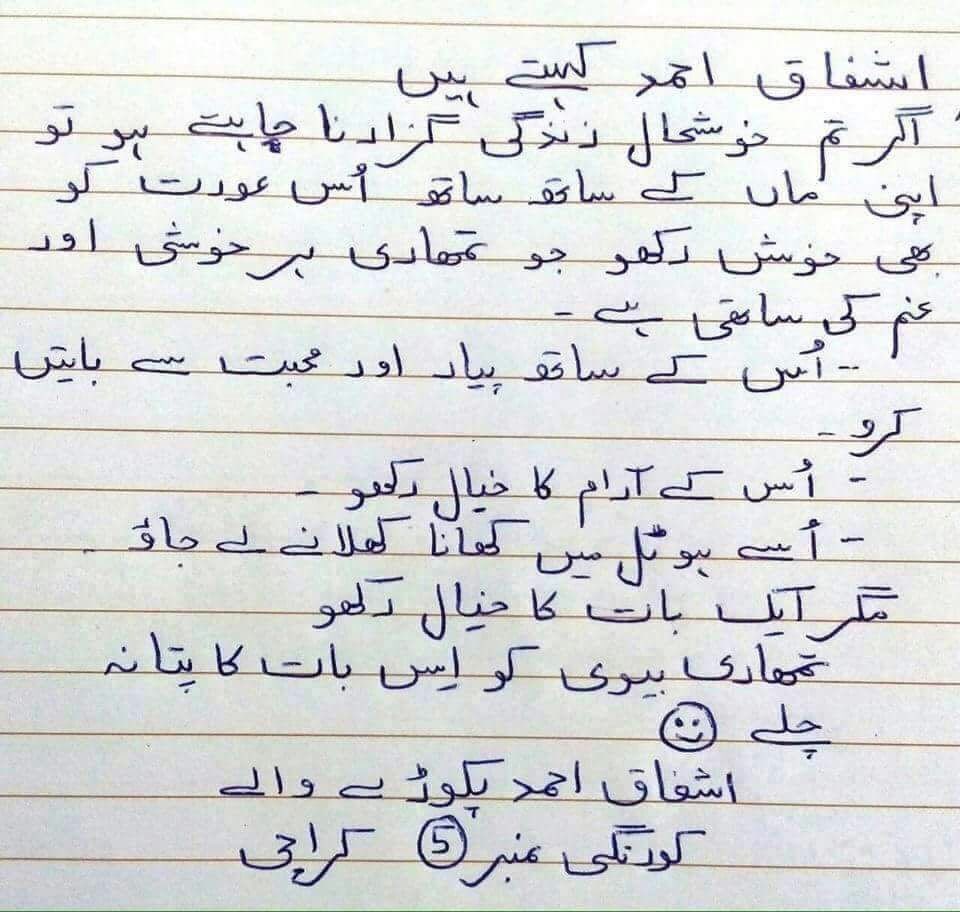 اشفاق احمد کہتے ہیں
اگر تم خوشحال زندگی گزارنا چاہتے ہو تو
اپنی ماں کے ساتھ ساتھ اُس عورت کو
بھی خوش رکھو جو تمھاری ہر خوشی اور
غم کی ساتھی ہے -
-- اُس کے ساتھ پیار اور محبت سے باتیں
کرو -
- اُس کے آرام کا خیال رکھو -
- اُسے ہوٹل میں کھانا کھلانے لے جاؤ -
مگر ایک بات کا خیال رکھو
تمھاری بیوی کو اِس بات کا پتا نہ
چلے ☺
اشفاق احمد پکوڑے والے
کورنگی نمبر 5 کراچی